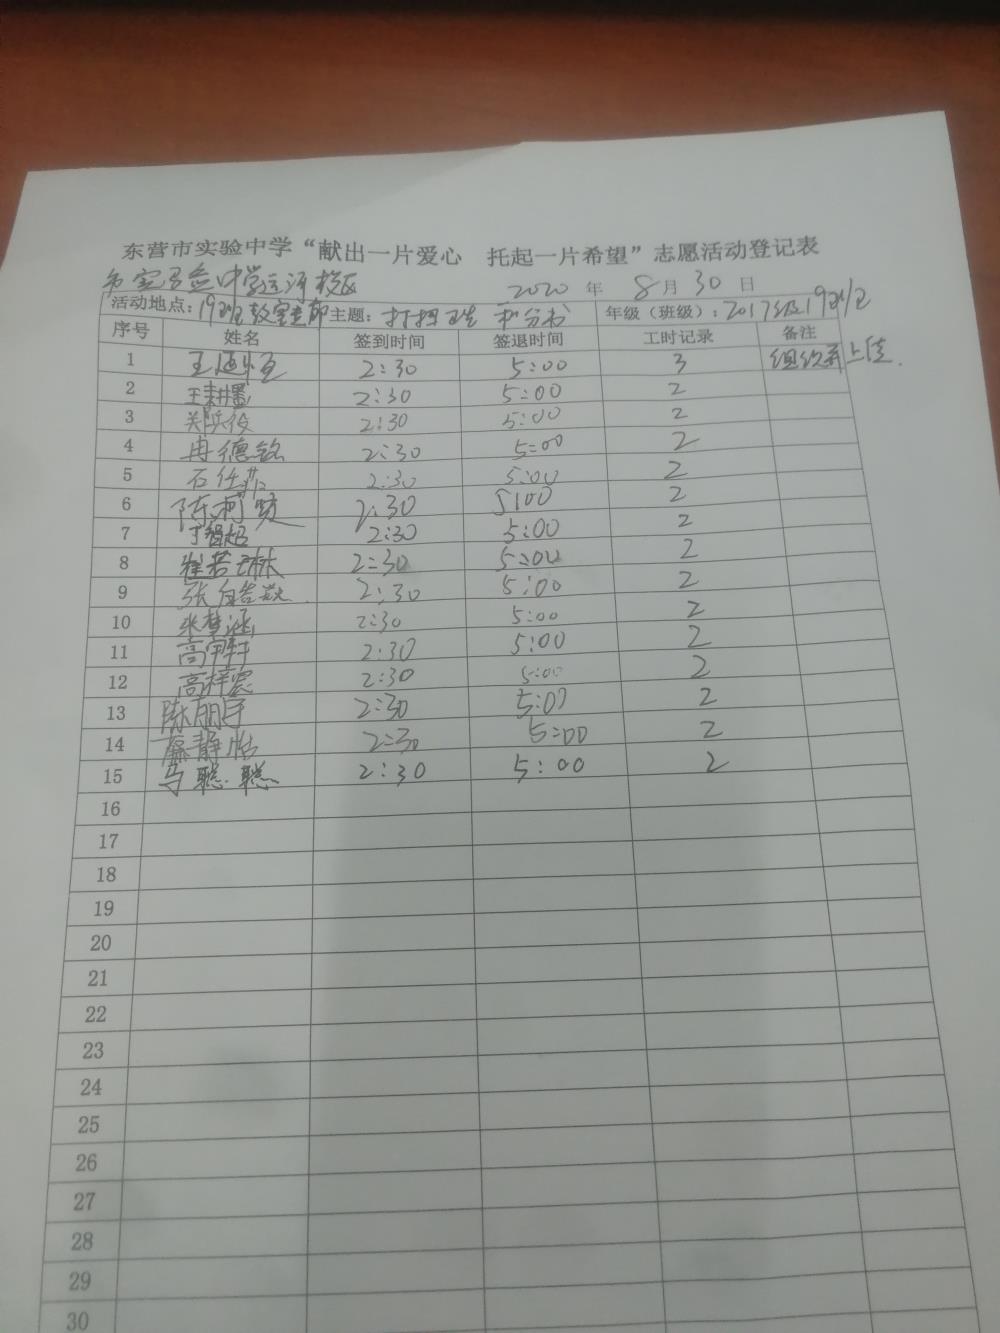 东营市实验中学“献出一片爱心 托起一片希望”志愿活动登记表
市实验中学运河校区 2020 年 8 月 30 日
活动地点：19班教室走廊 主题：打扫卫生 和分书 年级（班级）：2017级19班
序号 姓名 签到时间 签退时间 工时记录 备注
1 王 2:30 5:00 3 组织并上传.
2 王耕墨 2:30 5:00 2
3 2:30 5:00 2
4 冉德铭 2:30 5:00 2
5 石任 2:30 5:00 2
6 陈柯 2:30 5:00 2
7 丁智超 2:30 5:00 2
8 崔若琳 2:30 5:00 2
9 张 2:30 5:00 2
10 梦涵 2:30 5:00 2
11 高宇轩 2:30 5:00 2
12 高梓宸 2:30 5:00 2
13 陈朋宇 2:30 5:00 2
14 静恬 2:30 5:00 2
15 马聪聪 2:30 5:00 2
16
17
18
19
20
21
22
23
24
25
26
27
28
29
30